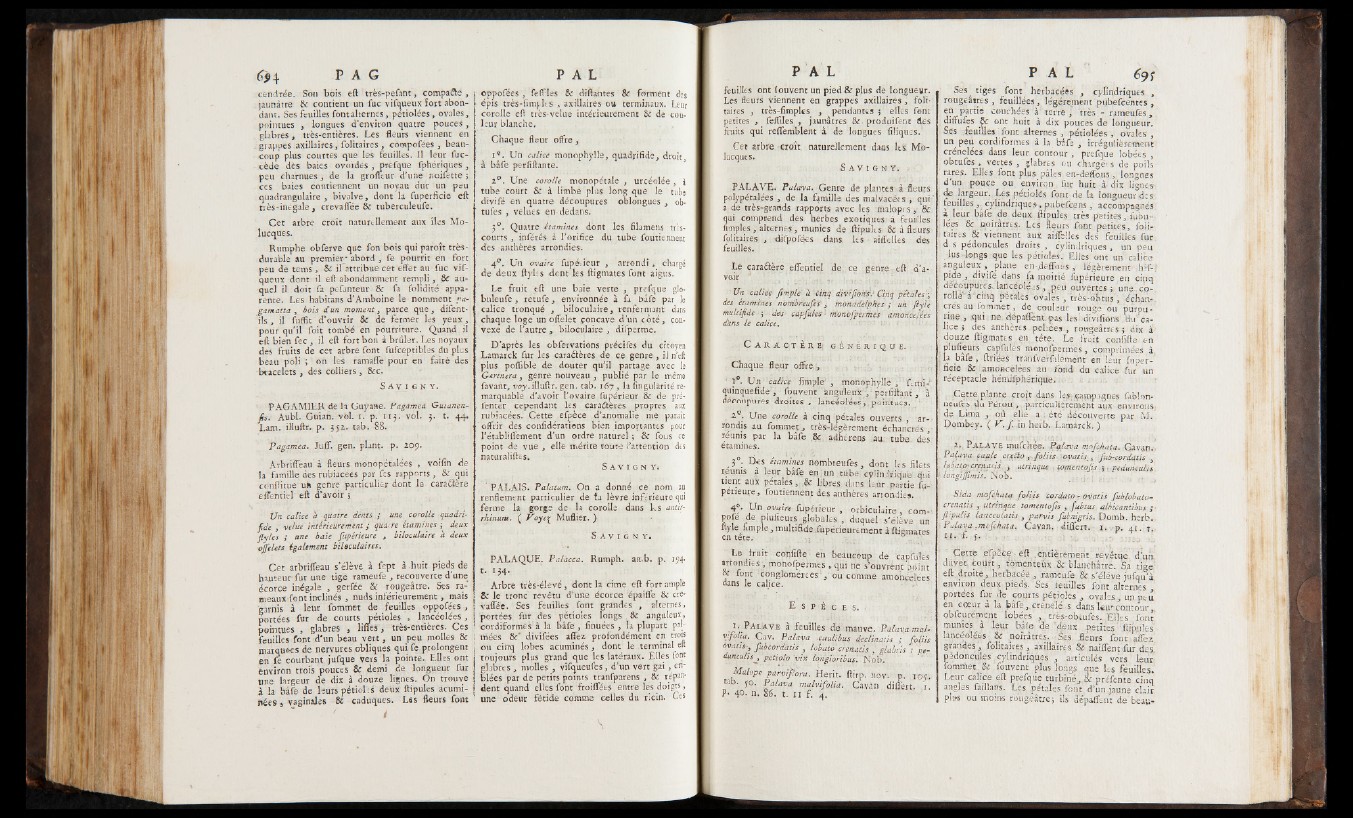 694 PAG
cendrée. Son bois eſt très-peſant, compacte,
jaunâtre & contient un ſuc viſqueux fort abon-
dant. Ses feuilles ſont alternes, pétiolées, ovales,
pointues, longues d'environ quatre pouces,
glabres, très-entières. Les fleurs viennent en
grappes axillaires, ſolitaires, compoſées, beau-
coup plus courtes que les feuilles. Il leur ſuc-
cède des baies ovoïdes, preſque ſphériques,
peu charnues, de la groſſeur d'une noiſette;
ces baies contiennent un noyau dur un peu
quadrangulaire, bivalve, dont la ſuperficie eſt
très-inégale, crevaſſée & tuberculeuſe.
Cet arbre croît naturellement aux îles Mo-
lucques.
Rumphe obſerve que ſon bois qui paroît très-
durable au premier abord, ſe pourrit en fort
peu de tems, & il attribue cet effet au ſuc viſ-
queux dont il eſt abondamment rempli, & au-
quel il doit ſa peſanteur & ſa ſolidité appa-
rente. Les habitans d'Amboine le nomment pa-
gamatta, bois d'un moment, parce que, diſent-
ils, il ſuffit d'ouvrir & de fermer les yeux,
pour qu'il ſoit tombé en pourriture. Quand il
eſt bien ſec, il eſt fort bon à brûler. Les noyaux
des fruits de cet arbre ſont ſuſceptibles du plus
beau poli; on les ramaſſe pour en faire des
bracelets, des colliers, &c.
SAVIGNY.
PAGAMIER de la Guyane. Pagamea Guianen-
ſis. Aubl. Guian. vol. 1. p. 113. vol. 3. t. 44.
Lam. illuſtr. p. 352. tab. 88.
Pagamea. Juſſ. gen. plant. p. 209.
Arbriſſeau à fleurs monopétalées, voiſin de
la famille des rubiacées par ſes rapports, & qui
conſtitue un genre particulier dont le caractère
eſſentiel eſt d'avoir;
Un calice à quatre dents; une corolle quadri-
fide, velue intérieurement; quatre étamines; deux
ſtyles; une baie ſupérieure, biloculaire à deux
oſſelets également biloculaires.
Cet arbriſſeau s'élève à ſept à huit pieds de
hauteur ſur une tige rameuſe, recouverte d'une
écorce inégale, gerſée & rougeâtre. Ses ra-
meaux ſont inclinés, nuds inférieurement, mais
garnis à leur ſommet de feuilles oppoſées,
portées ſur de courts pétioles, lancéolées,
pointues, glabres, liſſes, très-entières. Ces
feuilles ſont d'un beau vert, un peu molles &
marquées de nervures obliques qui ſe prolongent
en ſe courbant juſque vers la pointe. Elles ont
environ trois pouces & demi de longueur ſur
une largeur de dix à douze lignes. On trouve
à la bâſe de leurs pétioles deux ſtipules acumi-
nées, vaginales & caduques. Les fleurs ſont
PAL
oppoſées, ſeſſiles & diſtantes & forment des
épis très-ſimples, axillaires ou terminaux. Leur
corolle eſt très-velue intérieurement & de cou-
leur blanche.
Chaque fleur offre,
1°. Un calice monophylle, quadrifide, droit,
à bâſe perſiſtante.
2°. Une corolle monopétale, urcéolée, à
tube court & à limbe plus long que le tube
diviſé en quatre découpures oblongues, ob-
tuſes, velues en dedans.
3°. Quatre étamines dont les filamens très-
courts, inſérés à l'orifice du tube ſoutiennent
des anthères arrondies.
4°. Un ovaire ſupérieur, arrondi, chargé
de deux ſtyles dont les ſtigmates ſont aigus.
Le fruit eſt une baie verte, preſque glo-
buleuſe, rétuſe, environnée à ſa bâſe par le
calice tronqué, biloculaire, renfermant dans
chaque loge un oſſelet concave d'un côté, con-
vexe de l'autre, biloculaire, diſperme.
D'après les obſervations préciſes du citoyen
Lamarck ſur les caractères de ce genre, il n'eſt
plus poſſible de douter qu'il partage avec le
Gærtnera, genre nouveau, publié par le même
ſavant, voy. illuſtr. gen. tab. 167, la ſingularité re-
marquable d'avoir l'ovaire ſupérieur & de pré-
ſenter cependant les caractères propres aux
rubiacées. Cette eſpèce d'anomalie me paraît
offrir des conſidérations bien importantes pour
l'établiſſement d'un ordre naturel; & ſous ce
point de vue, elle mérite toute l'attention des
naturaliſtes.
SAVIGNY.
PALAIS. Palatum. On a donné ce nom au
renflement particulier de la lèvre inférieure qui
ferme la gorge de la corolle dans les anti-
rhinum. (Voyez Muflier.)
SAVIGNY.
PALAQUE. Palacca. Rumph. amb. p. 194.
t. 134.
Arbre très-élevé, dont la cime eſt fort ample
& le tronc revêtu d'une écorce épaiſſe & cre-
vaſſée. Ses feuilles ſont grandes, alternes,
portées ſur des pétioles longs & anguleux,
cordiformes à la bâſe, ſinuées, la plupart pal-
mées & diviſées aſſez profondément en trois
ou cinq lobes acuminés, dont le terminal eſt
toujours plus grand que les latéraux. Elles ſont
glabres, molles, viſqueuſes, d'un vert gai, cri-
blées par de petits points tranſparens, & répan-
dent quand elles ſont froiſſées entre les doigts,
une odeur fétide comme celles du ricin. Ces
PAL
feuilles ont ſouvent un pied & plus de longueur.
Les fleurs viennent en grappes axillaires, ſoli-
taires, très-ſimples, pendantes; elles ſont
petites, ſeſſiles, jaunâtres & produiſent des
fruits qui reſſemblent à de longues ſiliques.
Cet arbre croît naturellement dans les Mo-
lucques.
SAVIGNY.
PALAVE. Palava. Genre de plantes à fleurs
polypétalées, de la famille des malvacées, qui
a de très-grands rapports avec les malopes, &
qui comprend des herbes exotiques à feuilles
ſimples, alternes, munies de ſtipules & à fleurs
ſolitaires, diſpoſées dans les aiſſelles des
feuilles.
Le caractère eſſentiel de ce genre eſt d'a-
voir
Un calice ſimple à cinq diviſions. Cinq pétales;
des étamines nombreuſes, monadelphes; un ſtyle
multifide; des capſules monoſpermes amoncelées
dans le calice.
CARACTÈRE GÉNÉRIQUE.
Chaque fleur offre,
1°. Un calice ſimple, monophylle, ſemi-
quinquefide, ſouvent anguleux, perſiſtant, à
découpures droites, lancéolées, pointues.
2°. Une corolle à cinq pétales ouverts, ar-
rondis au ſommet, très-légèrement échancrés,
réunis par la bâſe & adhérens au tube des
étamines.
3°. Des étamines nombreuſes, dont les filets
réunis à leur bâſe en un tube cylindrique qui
tient aux pétales, & libres dans leur partie ſu-
périeure, ſoutiennent des anthères arrondies.
4°. Un ovaire ſupérieur, orbiculaire, com-
poſé de pluſieurs globules, duquel s'élève un
ſtyle ſimple, multifide ſupérieurement à ſtigmates
en tête.
Le fruit conſiſte en beaucoup de capſules
arrondies, monoſpermes, qui ne s'ouvrent point
& ſont conglomérées, ou comme amoncelées
dans le calice.
ESPÈCES.
1. PALAVE à feuilles de mauve. Palava mal-
vifolia. Cav. Palava caulibus declinatis; foliis
ovatis, ſubcordatis, lobato-crenatis, glabris; pe-
dunculis, petiolo vix longioribus. Nob.
Malope parviflora. Herit. ſtirp. nov. p. 105.
tab. 50. Palava malvifolia. Cavan diſſert. 1.
p. 40. n. 86. t. 11 f. 4.
PAL 695
Ses tiges ſont herbacées, cylindriques,
rougeâtres, feuillées, légèrement pubeſcentes,
en partie couchées à terre, très-rameuſes,
diffuſes & ont huit à dix pouces de longueur.
Ses feuilles ſont alternes, pétiolées, ovales,
un peu cordiformes à la bâſe, irrégulièrement
crénelées dans leur contour, preſque lobées,
obtuſes, vertes, glabres ou chargées de poils
rares. Elles ſont plus pâles en-deſſous, longues
d'un pouce ou environ ſur huit à dix lignes
de largeur. Les pétioles ſont de la longueur des
feuilles, cylindriques, pubeſcens, accompagnés
à leur bâſe de deux ſtipules très petites, ſubu-
lées & noirâtres. Les fleurs ſont petites, ſoli-
taires & viennent aux aiſſelles des feuilles ſur
des péduncules droits, cylindriques, un peu
plus longs que les pétioles. Elles ont un calice
anguleux, plane en-deſſous, légèrement hiſ-
pide, diviſé dans ſa moitié ſupérieure en cinq
découpures lancéolées, peu ouvertes; une co-
rolle à cinq pétales ovales, très-obtus, échan-
crés au ſommet, de couleur rouge ou purpu-
rine, qui ne dépaſſent pas les diviſions du ca-
lice; des anthères peltées, rougeâtres; dix à
douze ſtigmates en tête. Le fruit conſiſte en
pluſieurs capſules monoſpermes, comprimées à
la bâſe, ſtriées tranſverſalement en leur ſuper-
ficie & amoncelées au fond du calice ſur un
réceptacle hémiſphérique.
Cette plante croît dans les campagnes ſablon-
neuſes du Pérou, particulièrement aux environs
de Lima, où elle a été découverte par M.
Dombey. (V. ſ. in herb. Lamarck.)
2. PALAVE muſchée. Palava moſchata. Cavan.
Palava caule erecto, foliis ovatis, ſub-cordatis,
lobato-crenatis, utrinque tomentoſis; pedunculis
longiſſimis. Nob.
Sida moſchata foliis cordato-ovatis ſublobato-
crenatis, utrinque tomentoſis, ſubtus albicantibus;
ſtipulis lanceolatis, parvis ſubnigris. Domb. herb.
Palava moſchata. Cavan. diſſert. 1. p. 41. t.
11. f. 5.
Cette eſpèce eſt entièrement revêtue d'un
duvet court, tomenteux & blanchâtre. Sa tige
eſt droite, herbacée, rameuſe & s'élève juſqu'à
environ deux pieds. Ses feuilles ſont alternes,
portées ſur de courts pétioles, ovales, un peu
en cœur à la bâſe, crénelées dans leur contour,
obſcurément lobées, très-obtuſes. Elles ſont
munies à leur bâſe de deux petites ſtipules
lancéolées & noirâtres. Ses fleurs ſont aſſez
grandes, ſolitaires, axillaires & naiſſent ſur des
péduncules cylindriques, articulés vers leur
ſommet & ſouvent plus longs que les feuilles.
Leur calice eſt preſque turbiné, & préſente cinq
angles ſaillans. Les pétales ſont d'un jaune clair
plus ou moins rougeâtre; ils dépaſſent de beau-